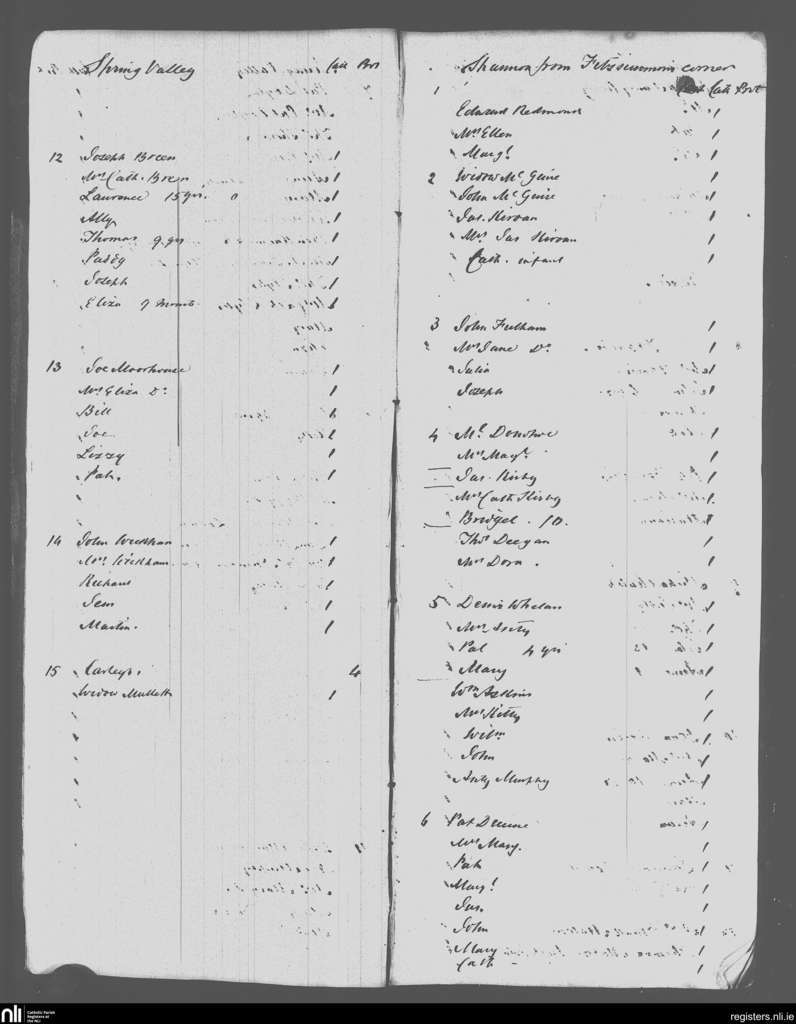 Spring Valley Cath Prot
12 Joseph Breen 1
Mrs Cath. Breen 1
Lawrence 15 yrs. 1
Ally 1
Thomas 9 yrs 1
Paddy 1
Joseph 1
Eliza 9 Months 1
13 Joe Moorhouse 1
Mrs Eliza Do 1
Bill 1
Joe 1
Lizzy 1
Pat. 1
14 John Wickham 1
Mrs Wickham 1
Richard 1
Jem 1
Martin. 1
15 Carleys 4
Widow Mullett 1
Shannon from Fitzsimmons corner
1 Cath Prot
Edward Redmond 1
Mrs Ellen 1
Margt 1
2 Widow Mc Guire 1
John Mc Guire 1
Jas. Kirvan 1
Mrs Jas Kirvan 1
Cath. infant 1
3 John Fulham 1
Mrs Jane Do 1
Julia 1
Joseph 1
4 Ml. Donohoe 1
Mrs Mary 1
Jas. Kirby 1
Mrs Cath Kirby 1
Bridget. 10. 1
Thos Deegan 1
Mrs Dora. 1
5 Denis Whelan 1
Mrs 1
Pat 4 yrs 1
Mary 1
Wm 1
Mrs Kitty 1
Willm 1
John 1
Murphy 1
6 Pat 1
Mrs Mary. 1
Pat 1
Margt 1
Jas. 1
John 1
Mary 1
Cath 1
nli Catholic Parish
Registers at
the NLI
registers.nli.ie